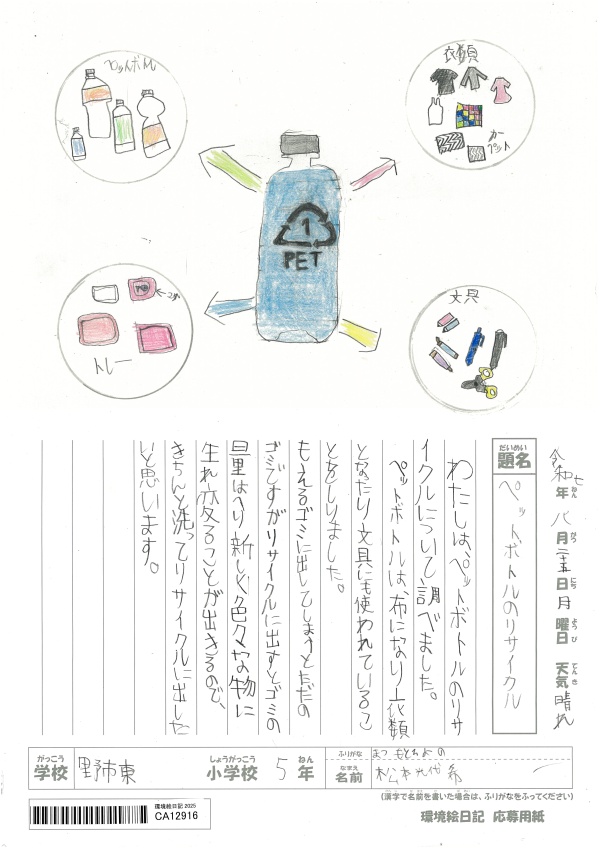 ペットボトル
衣類
カーペット
1
PET
トレー
文具
令和七年八月二十五日月曜日 天気 晴れ
ねん がつ にち ようび てんき
だいめい
題名
ペットボトルのリサイクル
わたしは、ペットボトルのリサ
イクルについて調べました。
ペットボトルは、布になり、衣類
となたり文具にも使われているこ
とをしりました。
もえるゴミに出してしまうとただの
ゴミですがリサイクルに出すとゴミの
量はへり新しく色々な物に
生れ変ることが出きるので、
きちんと洗ってリサイクルに出した
いと思います。
がっこう しょうがっこう ねん
学校 野市東 小学校 5年
ふりがな まつもとちよの
なまえ
名前 松本
(漢字で名前を書いた場合は、ふりがなをふってください)
環境絵日記 2025
CA12916
環境絵日記 応募用紙